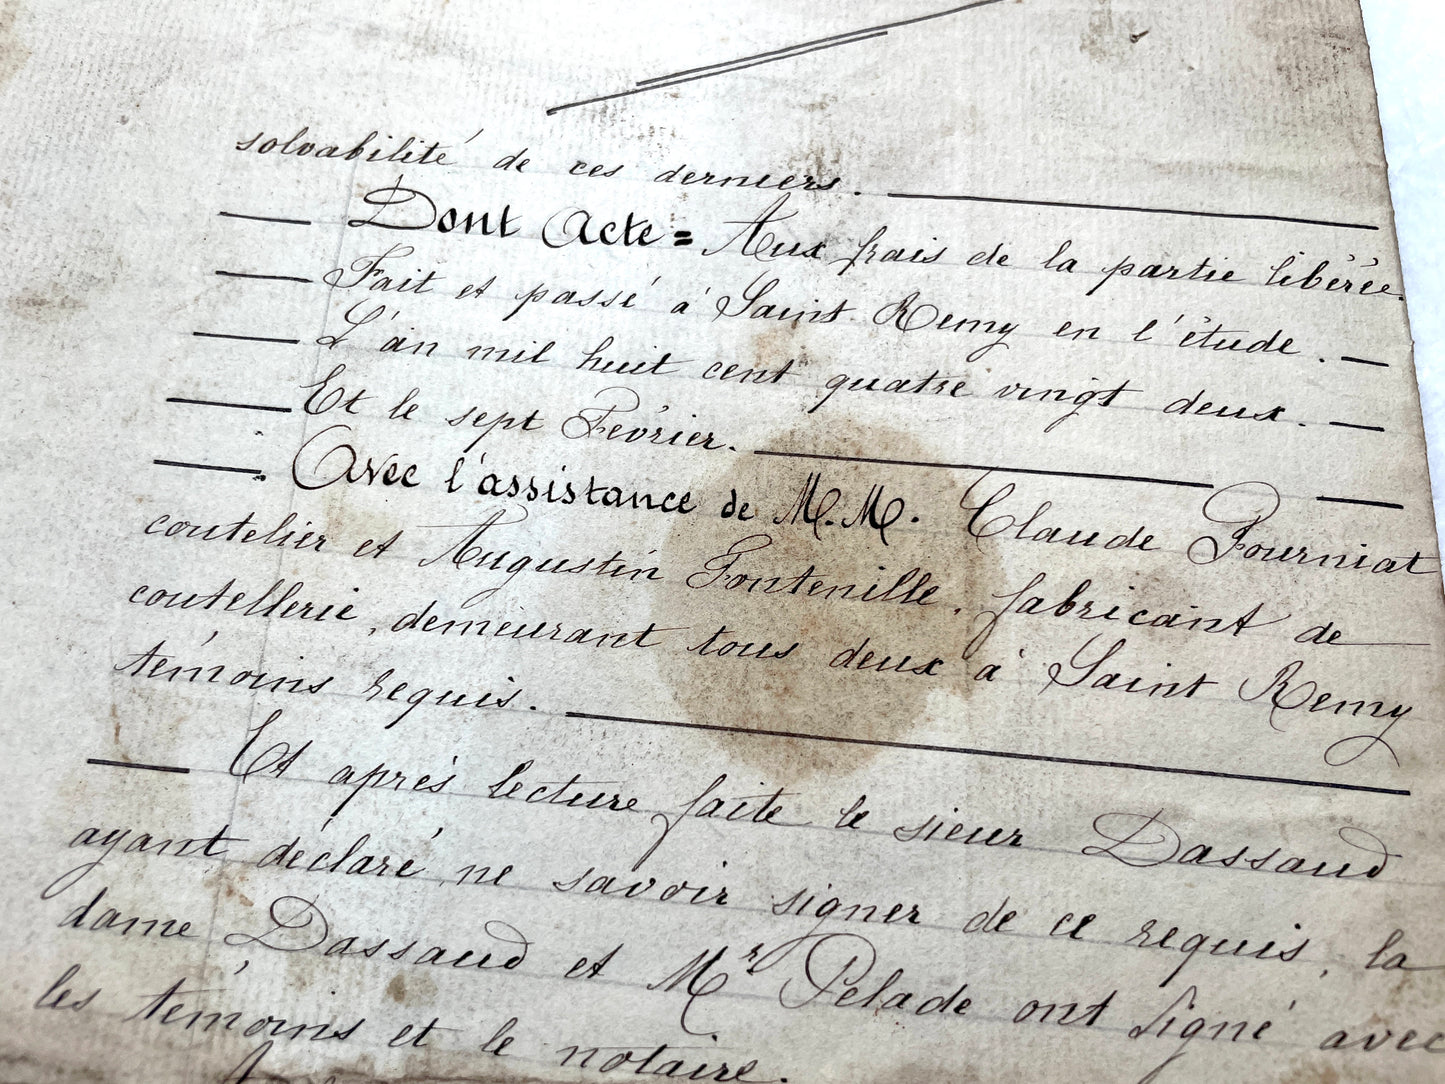 solvabilité de ces derniers.
Dont Acte = Aux frais de la partie libérée.
Fait et passé à Saint Remy en l'étude.
L'an mil huit cent quatre vingt deux.
Et le sept Février.
Avec l'assistance de M.M. Claude Fourniat
coutelier et Augustin Fontenille, fabricant de
coutellerie, demeurant tous deux à Saint Remy
témoins requis.
Et après lecture faite le sieur Dassaud
ayant déclaré ne savoir signer de ce requis, la
dame Dassaud et Mr Pelade ont signé avec
les témoins et le notaire.